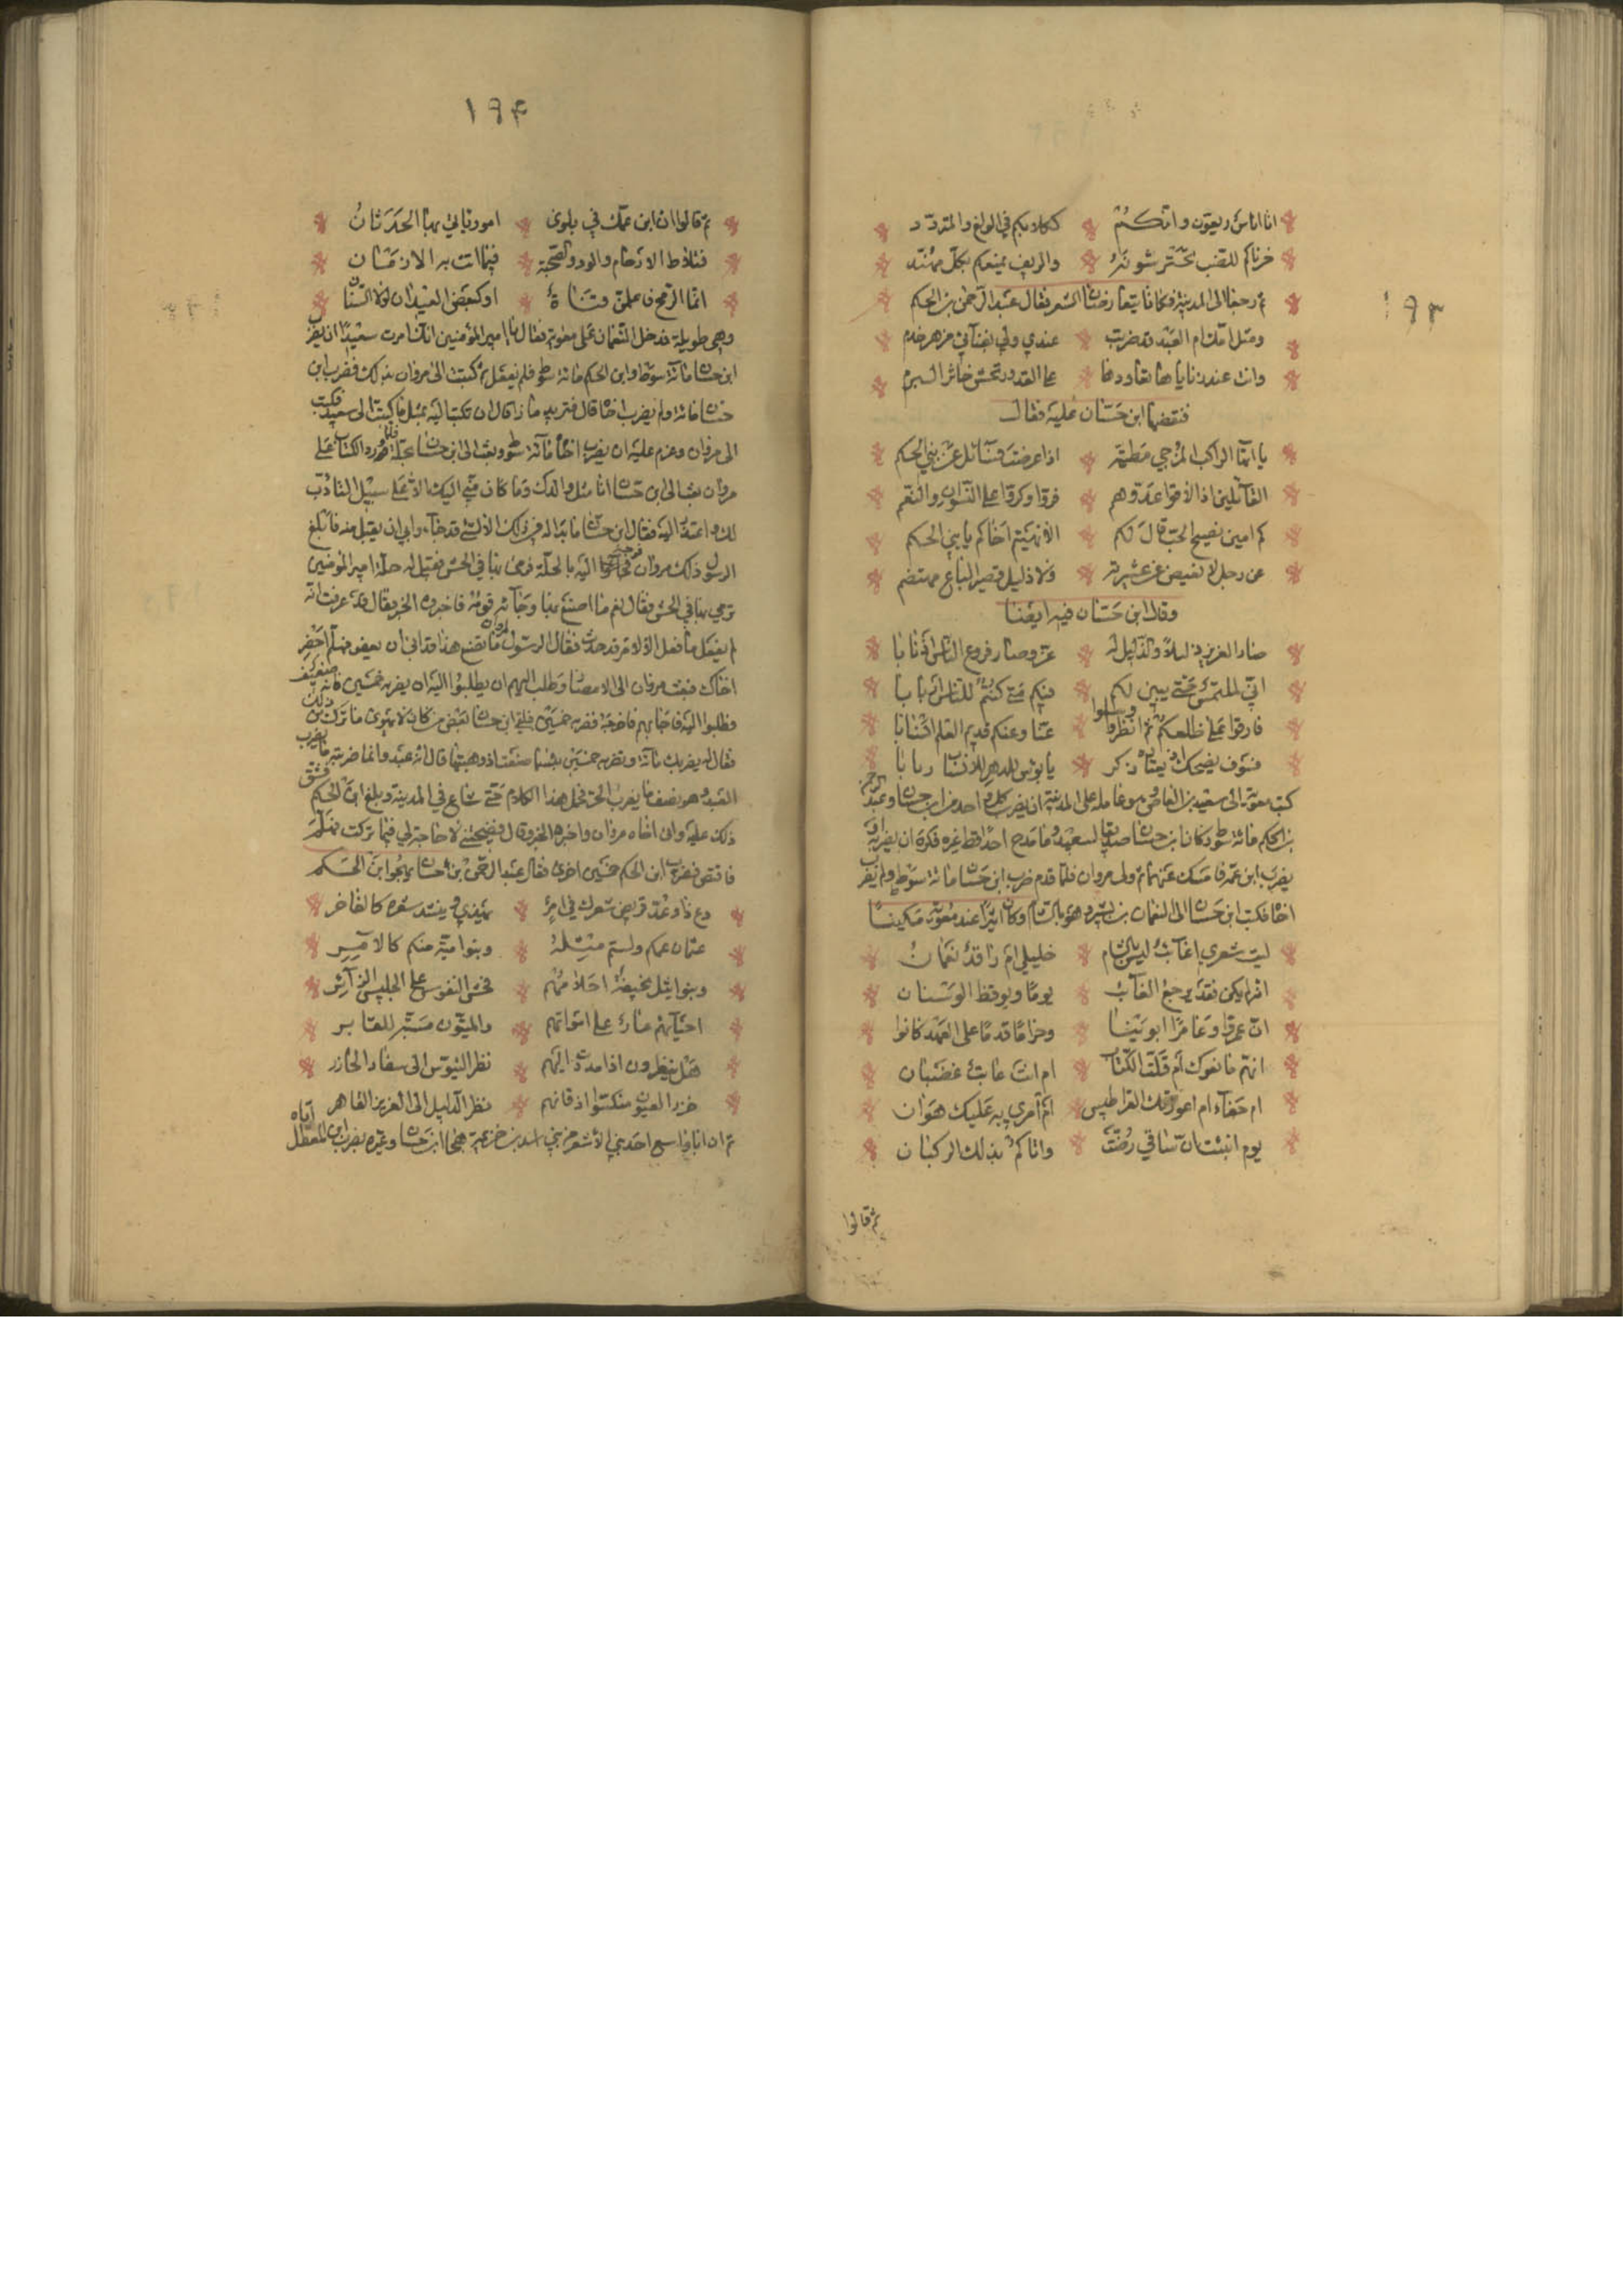 ١٩٣
انا اناس ريعيون وانكم
ككلامكم في الولغ والمتردد
خزناكم للضب تحترشونه
والريف يمنعكم بكل مهند
ثم رجعا الى المدينة فكانا يتعارضان الشعر فقال عبد الرحمن بن الحكم
ومثل امك ام العبد قد ضربت
عندي ولي بفنائي مزهر خدم
وانت عند
على القدور تحسى خاثر البرم
فنقضها ابن حسان عليه فقال
يا ايها الراكب المزجي مطيته
اذا عرضت فسائل عن بني الحكم
القائلين اذا لاقوا عدوهم
فروا وكروا على النسوان والنعم
كم امين نصيح الجيب قال لكم
الا نهيتم اخاكم يا بني الحكم
عن رجل لا بغيض في عشيرته
ولا ذليل قصير الباع مهتضم
وقال ابن حسان فيه ايضا
صار العزيز ذليلا والذليل له
عز وصار فروع الناس اذنابا
اني لملتمس حتى يبين لكم
فيكم متى كنتم للناس اربابا
فارقوا على ظلعكم ثم انظروا وسلوا
عنا وعنكم قديم العلم انسابا
فسوف يضحك او يعتاده ذكر
يا بؤس للدهر للانسان ريابا
كتب معوية الى سعيد بن العاص وهو عامله على المدينة ان يضرب كل واحد من ابن حسان وعبد الرحمن
بن الحكم مائة سوط وكان ابن حسان صديقا لسعيد وما مدح احدا قط غيره فكره ان يضربه او
يضرب ابن عمه فامسك عنهما ثم ولى مروان فلما قدم ضرب ابن حسان مائة سوط ولم يضرب
اخاه فكتب ابن حسان الى النعمان بن بشير وهو بالشام وكان اثيرا عند معوية مكينا
ليت شعري اغائب ليس بالشام
خليلي ام راقد نعمان
اية ما يكن فقد يرجع الغائب
يوما ويوقظ الوسنان
ان عمرا وعامرا ابوينا
وحزاما قدما على العهد كانوا
انهم مانعوك ام قلة الكتاب
ام انت عاتب غضبان
ام جفاء ام اعوزتك القراطيس
ام امري به عليك هوان
يوم انبئت ان ساقي رضت
واتاكم بذلك الركبان
ثم قالوا
١٩٤
ثم قالوا ان ابن عمك في بلوى
امور اتى بها الحدثان
فتلاط الارحام والود والصحبة
فيما اتت به الازمان
انما الرمح فاعلمن قناة
او كبعض العيدان لولا السنان
وهي طويلة فدخل النعمان على معوية فقال يا امير المؤمنين انك امرت سعيدا ان يضرب
ابن حسان مائة سوط وابن الحكم مائة سوط فلم يفعل ثم كتبت الى مروان بذلك فضرب ابن
حسان مائة ولم يضرب اخاه قال فتريد ماذا قال ان تكتب اليه بمثل ما كتبت الى سعيد فكتب
الى مروان وعزم عليه ان يضرب اخاه مائة سوط وبعث الى ابن حسان بحلة فلما ورد الكتاب على
مروان بعث الى ابن حسان انا مثل والدك وما كان مني اليك الا على سبيل التادب
لك واعتذر اليه فقال ابن حسان ما بدا له في ذلك الا لشيء قد جاءه وابى ان يقبل منه فابلغ
الرسول ذلك مروان فوجه اليه بالحلة فرمى بها في الحش فقيل له حلة امير المؤمنين
ترمي بها في الحش فقال نعم ما اصنع بها وجاءه قومه فاخبروه الخبر فقال قد عرفت انه
لم يفعل ما فعل الا لامر قد حدث فقال الرسول لمروان ما تصنع بهذا قد ابى ان يعفو فهلم احضر
اخاك فبعث مروان الى الانصار وطلب اليهم ان يطلبوا اليه ان يضربه خمسين فانه ضعيف
وطلبوا اليه فاجابهم فاخرجه فضربه خمسين فلقي ابن حسان بعض من كان لا يهوى ما ترك من ذلك
فقال له يضربك مائة وتضربه خمسين بئسما صنعت اذ وهبتها قال انه عبد وانما ضربته ما يضرب
العبد وهو نصف ما يضرب الحر فحمل هذا الكلام حتى شاع في المدينة وبلغ ابن الحكم فشق
ذلك عليه واتى اخاه مروان واخبره الخبر وقال فضحتني لا حاجة لي فيما تركت فهلم
فاقتص فضرب ابن الحكم خمسين اخرى فقال عبد الرحمن بن حسان يهجو ابن الحكم
دع ذا وعد قريض شعرك في امرئ
يهذي وينشد شعره كالفاخر
عثمان عمكم ولستم مثله
وبنو امية منكم كالامر
وبنو ابيك سخيفة احلامهم
فحش النفوس على الجليس الزائر
احياؤهم عار على امواتهم
والميتون مسبة للغابر
هم ينظرون اذا مددت اليهم
نظر التيوس الى شفار الجازر
خزر العيون منكسوا اذقانهم
نظر الذليل الى العزيز القاهر
ثم ان ابا واسع احد بني الاشعر من بني اسد بن خزيمة هجا ابن حسان وعيره بضرب ابن المعطل اباه